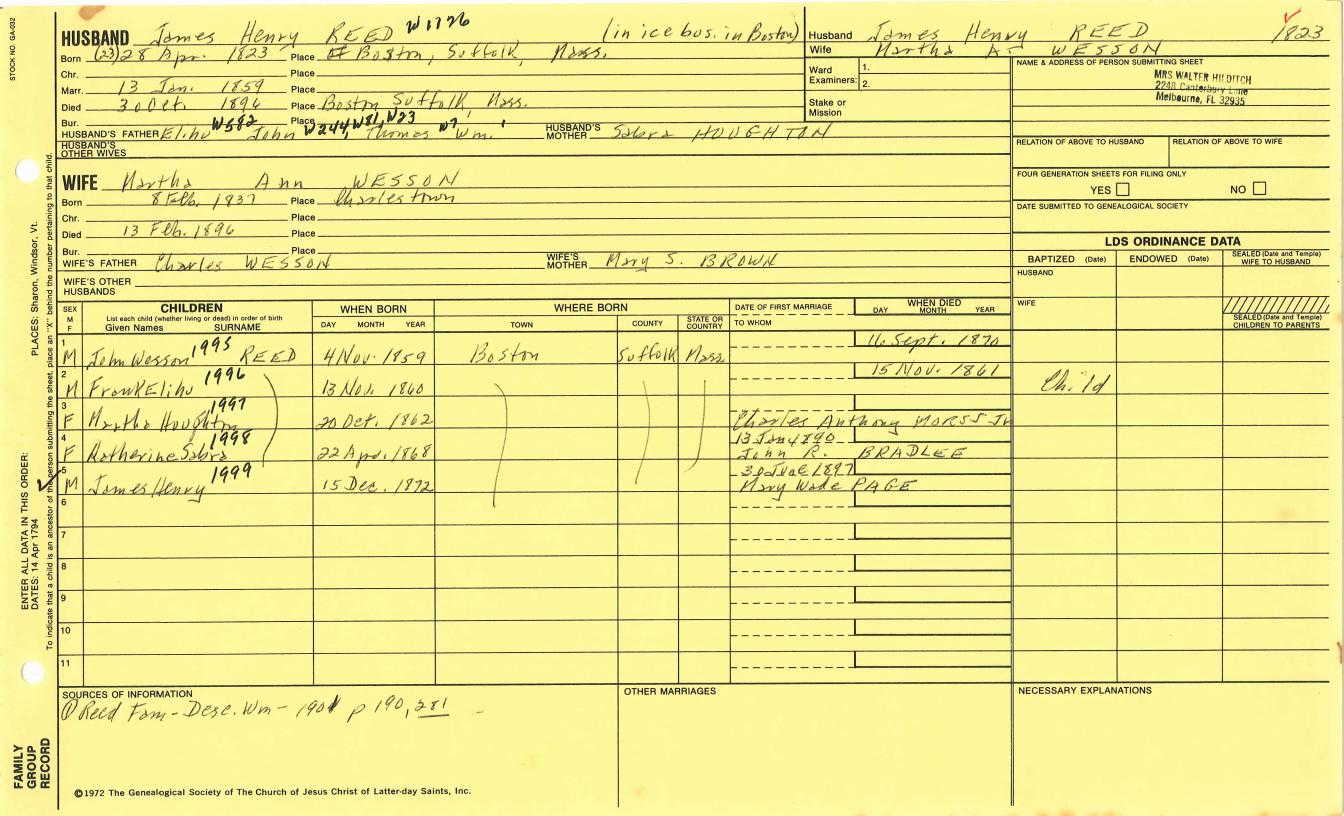 STOCK NO. GA-032
HUSBAND James Henry REED W1726 (in ice bus. in Boston)
Born (23) 28 Apr. 1823 Place Boston, Suffolk, Mass.
Chr. Place
Marr. 13 Jan. 1859 Place
Died 30 Oct. 1896 Place Boston Suffolk, Mass.
Bur. Place
HUSBAND'S FATHER Elihu W582 John W244, W81, W23 Thomas W7 Wm. 1 HUSBAND'S MOTHER Sabra HOUGHTON
HUSBAND'S OTHER WIVES
WIFE Martha Ann WESSON
Born 8 Feb. 1837 Place Charlestown
Chr. Place
Died 13 Feb. 1896 Place
Bur. Place
WIFE'S FATHER Charles WESSON WIFE'S MOTHER Mary S. BROWN
WIFE'S OTHER HUSBANDS
Husband James Henry REED 1823
Wife Martha A WESSON
Ward Examiners: 1.
2.
Stake or Mission
NAME & ADDRESS OF PERSON SUBMITTING SHEET
MRS WALTER HILDITCH
2248 Canterbury Lane
Melbourne, FL 32935
RELATION OF ABOVE TO HUSBAND RELATION OF ABOVE TO WIFE
FOUR GENERATION SHEETS FOR FILING ONLY
YES NO
DATE SUBMITTED TO GENEALOGICAL SOCIETY
LDS ORDINANCE DATA
BAPTIZED (Date) ENDOWED (Date) SEALED (Date and Temple) WIFE TO HUSBAND
HUSBAND
WIFE
SEALED (Date and Temple) CHILDREN TO PARENTS
SEX M F CHILDREN List each child (whether living or dead) in order of birth Given Names SURNAME WHEN BORN DAY MONTH YEAR WHERE BORN TOWN COUNTY STATE OR COUNTRY DATE OF FIRST MARRIAGE TO WHOM WHEN DIED DAY MONTH YEAR
1 M John Wesson 1995 REED 4 Nov. 1859 Boston Suffolk Mass. 16 Sept. 1870
2 M Frank Elihu 1996 13 Nov. 1860 15 Nov. 1861 Child
3 F Martha Houghton 1997 20 Oct. 1862 Charles Anthony MORSS Jr
4 F Katherine Sabra 1998 22 Apr. 1868 13 Jan 1890 John R. BRADLEE
5 M James Henry 1999 15 Dec. 1872 30 June 1897 Mary Wade PAGE
6
7
8
9
10
11
SOURCES OF INFORMATION
① Reed Fam - Desc. Wm - 1901 p 190, 281
OTHER MARRIAGES
NECESSARY EXPLANATIONS
©1972 The Genealogical Society of The Church of Jesus Christ of Latter-day Saints, Inc.
FAMILY GROUP RECORD
ENTER ALL DATA IN THIS ORDER:
DATES: 14 Apr 1794 PLACES: Sharon, Windsor, Vt.
To indicate that a child is an ancestor of the person submitting the sheet, place an "X" behind the number pertaining to that child.